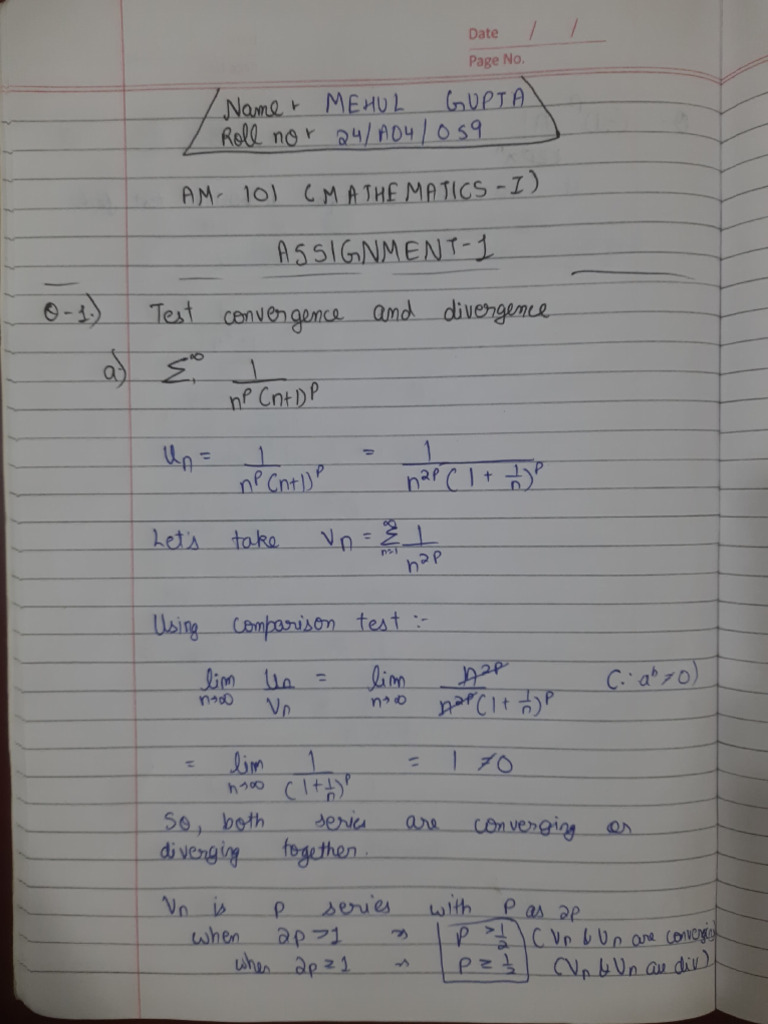 Date / /
Page No.
Name :- MEHUL GUPTA
Roll no :- 24/A04/059
AM- 101 (MATHEMATICS-I)
ASSIGNMENT-1
Q-1.) Test convergence and divergence
a) ∑₁^∞ 1/(n^p (n+1)^p)
Un = 1/(n^p (n+1)^p) = 1/(n^2p (1 + 1/n)^p)
Let's take Vn = ∑_{n=1}^∞ 1/n^2p
Using comparison test :-
lim_{n→∞} Un/Vn = lim_{n→∞} n^2p/(n^2p (1 + 1/n)^p) (∵ a^b ≠ 0)
= lim_{n→∞} 1/(1+1/n)^p = 1 ≠ 0
So, both series are converging or
diverging together.
Vn is p series with p as 2p
when 2p > 1 → p > 1/2 (Vn & Un are converging
when 2p ≤ 1 → p ≤ 1/2 (Vn & Un are div)